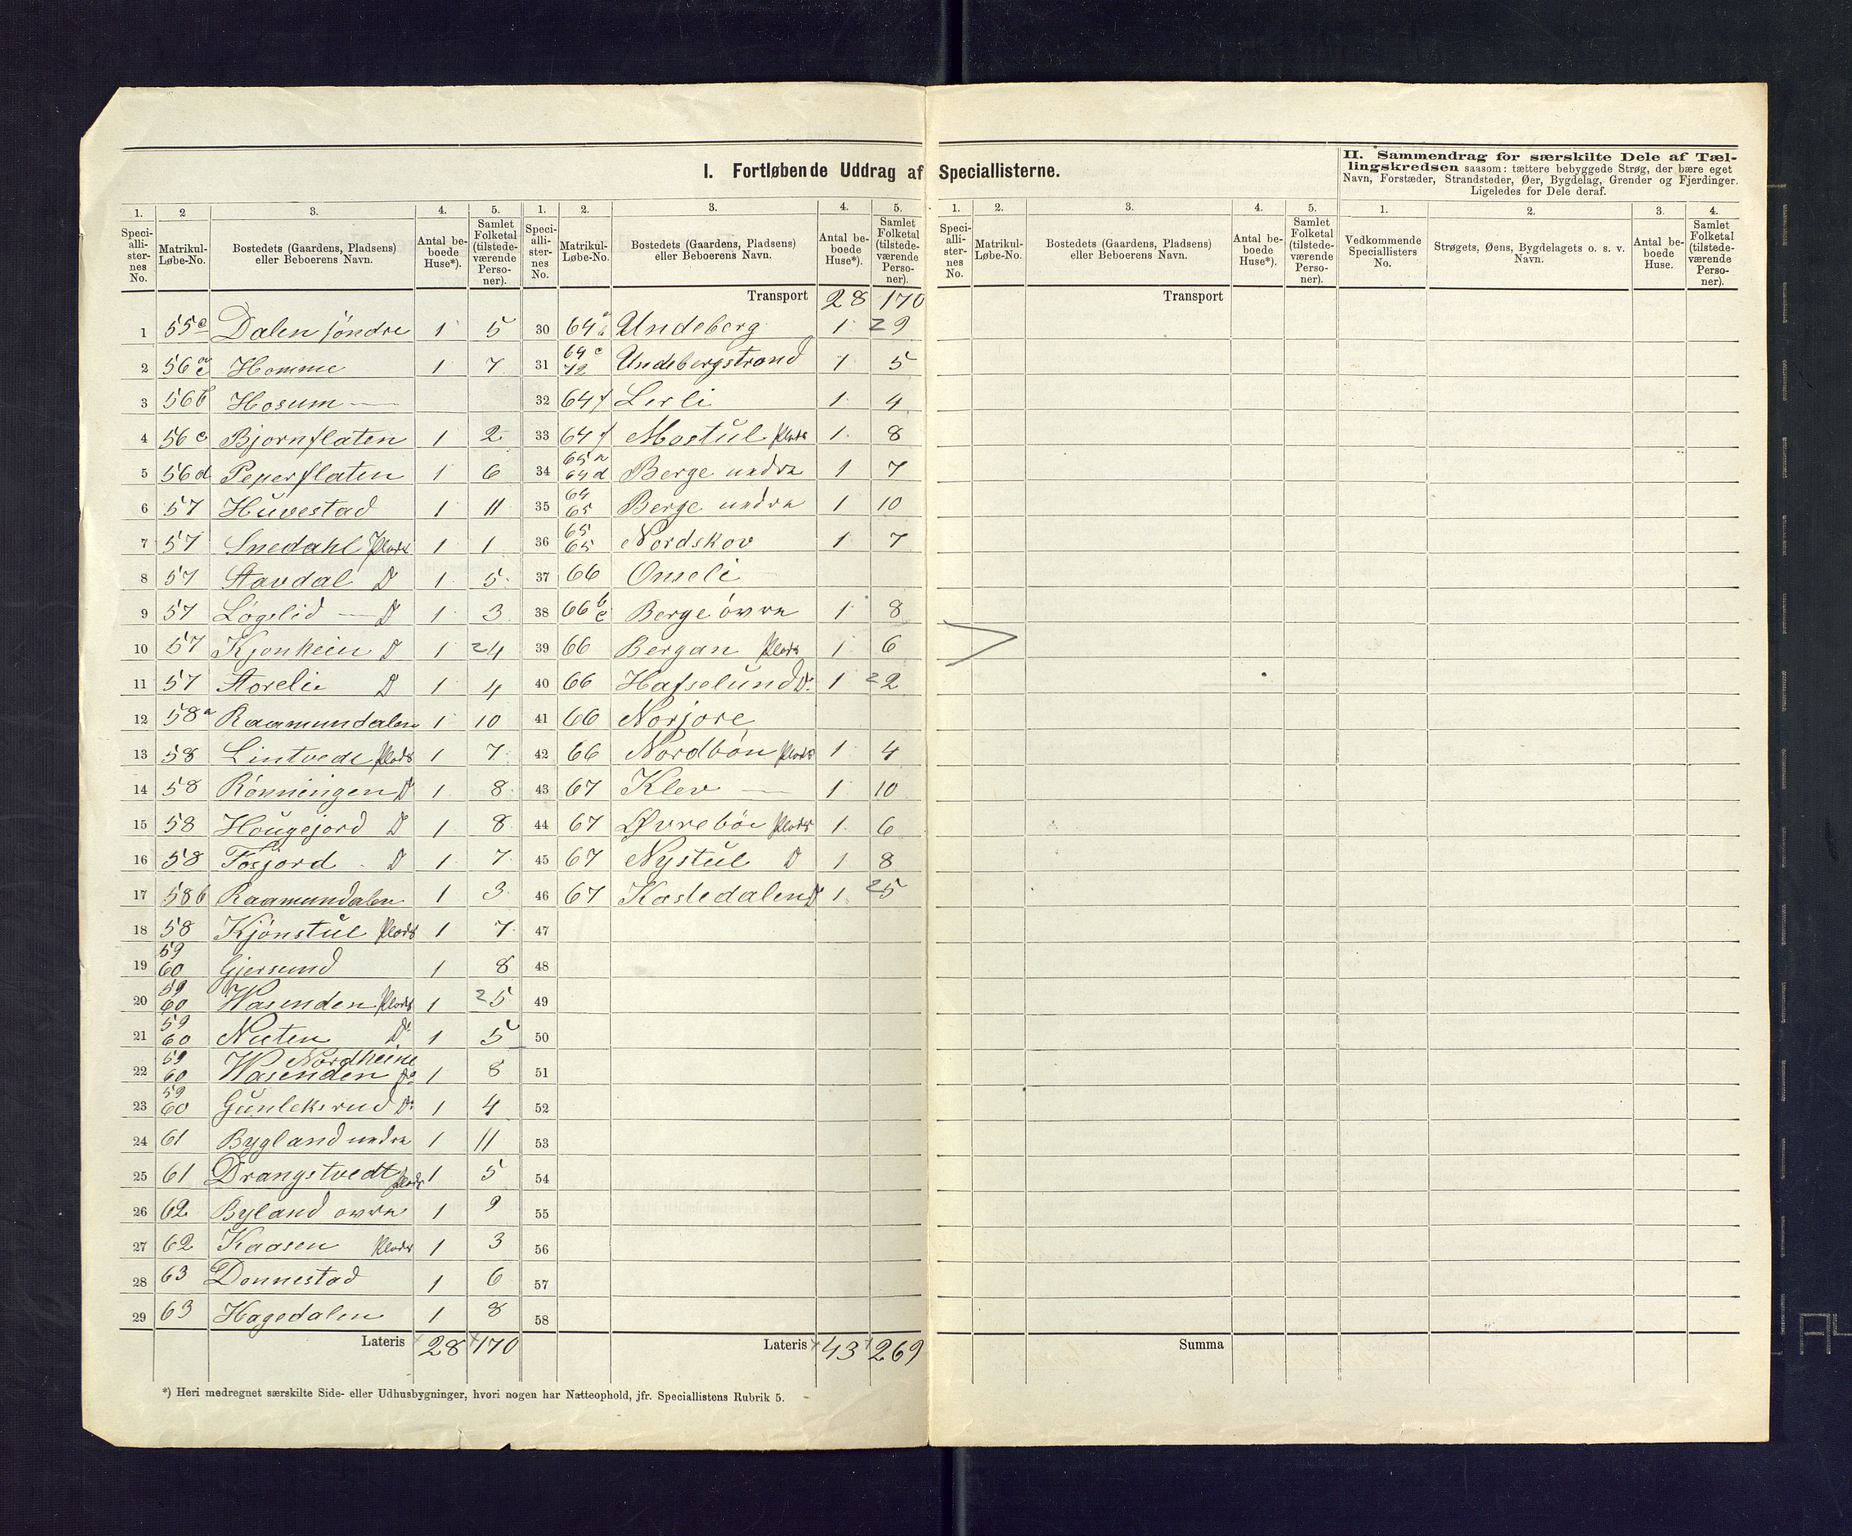 I. Fortløbende Uddrag af Speciallisterne.
II. Sammendrag for særskilte Dele af Tæl-
lingskredsen saasom: tættere bebyggede Strøg, der bære eget
Navn, Forstæder, Strandsteder, Øer, Bygdelag, Grender og Fjerdinger.
Ligeledes for Dele deraf.
1. 2 3. 4. 5. 1. 2. 3. 4. 5. 1. 2. 3. 4. 5. 1. 2. 3. 4.
Speci-alli-ster-nes No. Matrikul-Løbe-No. Bostedets (Gaardens, Pladsens) eller Beboerens Navn. Antal be-boede Huse*). Samlet Folketal (tilstede-værende Perso-ner).
Speci-alli-ster-nes No. Matrikul-Løbe-No. Bostedets (Gaardens, Pladsens) eller Beboerens Navn. Antal be-boede Huse*). Samlet Folketal (tilstede-værende Perso-ner).
Speci-alli-ster-nes No. Matrikul-Løbe-No. Bostedets (Gaardens, Pladsens) eller Beboerens Navn. Antal be-boede Huse*). Samlet Folketal (tilstede-værende Perso-ner).
Vedkommende Speciallisters No. Strøgets, Øens, Bygdelagets o. s. v. Navn. Antal be-boede Huse. Samlet Folketal (tilstede-værende Perso-ner).
1 55c Dalen söndre 1 5
2 56 a c Homme 1 7
3 56b Hosum —
4 56c Bjornflaten 1 2
5 56d Peperflaten 1 6
6 57 Huvestad 1 11
7 57 Snedahl Plads 1 1
8 57 Stavdal D 1 5
9 57 Løgelid — D 1 3
10 57 Kjonheim D 1 2 4
11 57 Storelie D 1 4
12 58a Raamundalen 1 10
13 58 Lintvedt Plads 1 7
14 58 Rönningen D 1 8
15 58 Hougejord D 1 8
16 58 Fosjord D 1 7
17 58b Raamundalen 1 3
18 58 Kjönstul Plads 1 7
19 59 60 Gjersund 1 8
20 59 60 Wasenden Plads 1 2 5
21 59 60 Nuten Do 1 5
22 59 60 Nordheim Wasenden Do 1 8
23 59 60 Gunleksrud Do 1 4
24 61 Bygland nedre 1 11
25 61 Drangstvedt Plads 1 5
26 62 Byland øvre 1 9
27 62 Kaasen Plads 1 3
28 63 Donnestad 1 6
29 63 Hagedalen 1 8
Lateris 28 170
Transport 28 170
30 64 Undeberg 1 2 9
31 64c 72 Undebergstrand 1 5
32 64f Lerli 1 4
33 64f Mostul Plads 1 8
34 65a 64d Berge nedre 1 7
35 64 65 Berge nedre 1 10
36 65 65 Nordskov 1 7
37 66 Omseli
38 66 b c Berge øvre 1 8
39 66 Bergan Plads 1 6
40 66 Hafselund Do 1 2 2
41 66 Norjore
42 66 Nordbön Plads 1 4
43 67 Klev — 1 10
44 67 Øvrebö Plads 1 6
45 67 Nystul D 1 8
46 67 Kastedalen D 1 2 5
47
48
49
50
51
52
53
54
55
56
57
58
Lateris 43 269
Transport
Summa
*) Heri medregnet særskilte Side- eller Udhusbygninger, hvori nogen har Natteophold, jfr. Speciallistens Rubrik 5.
A4